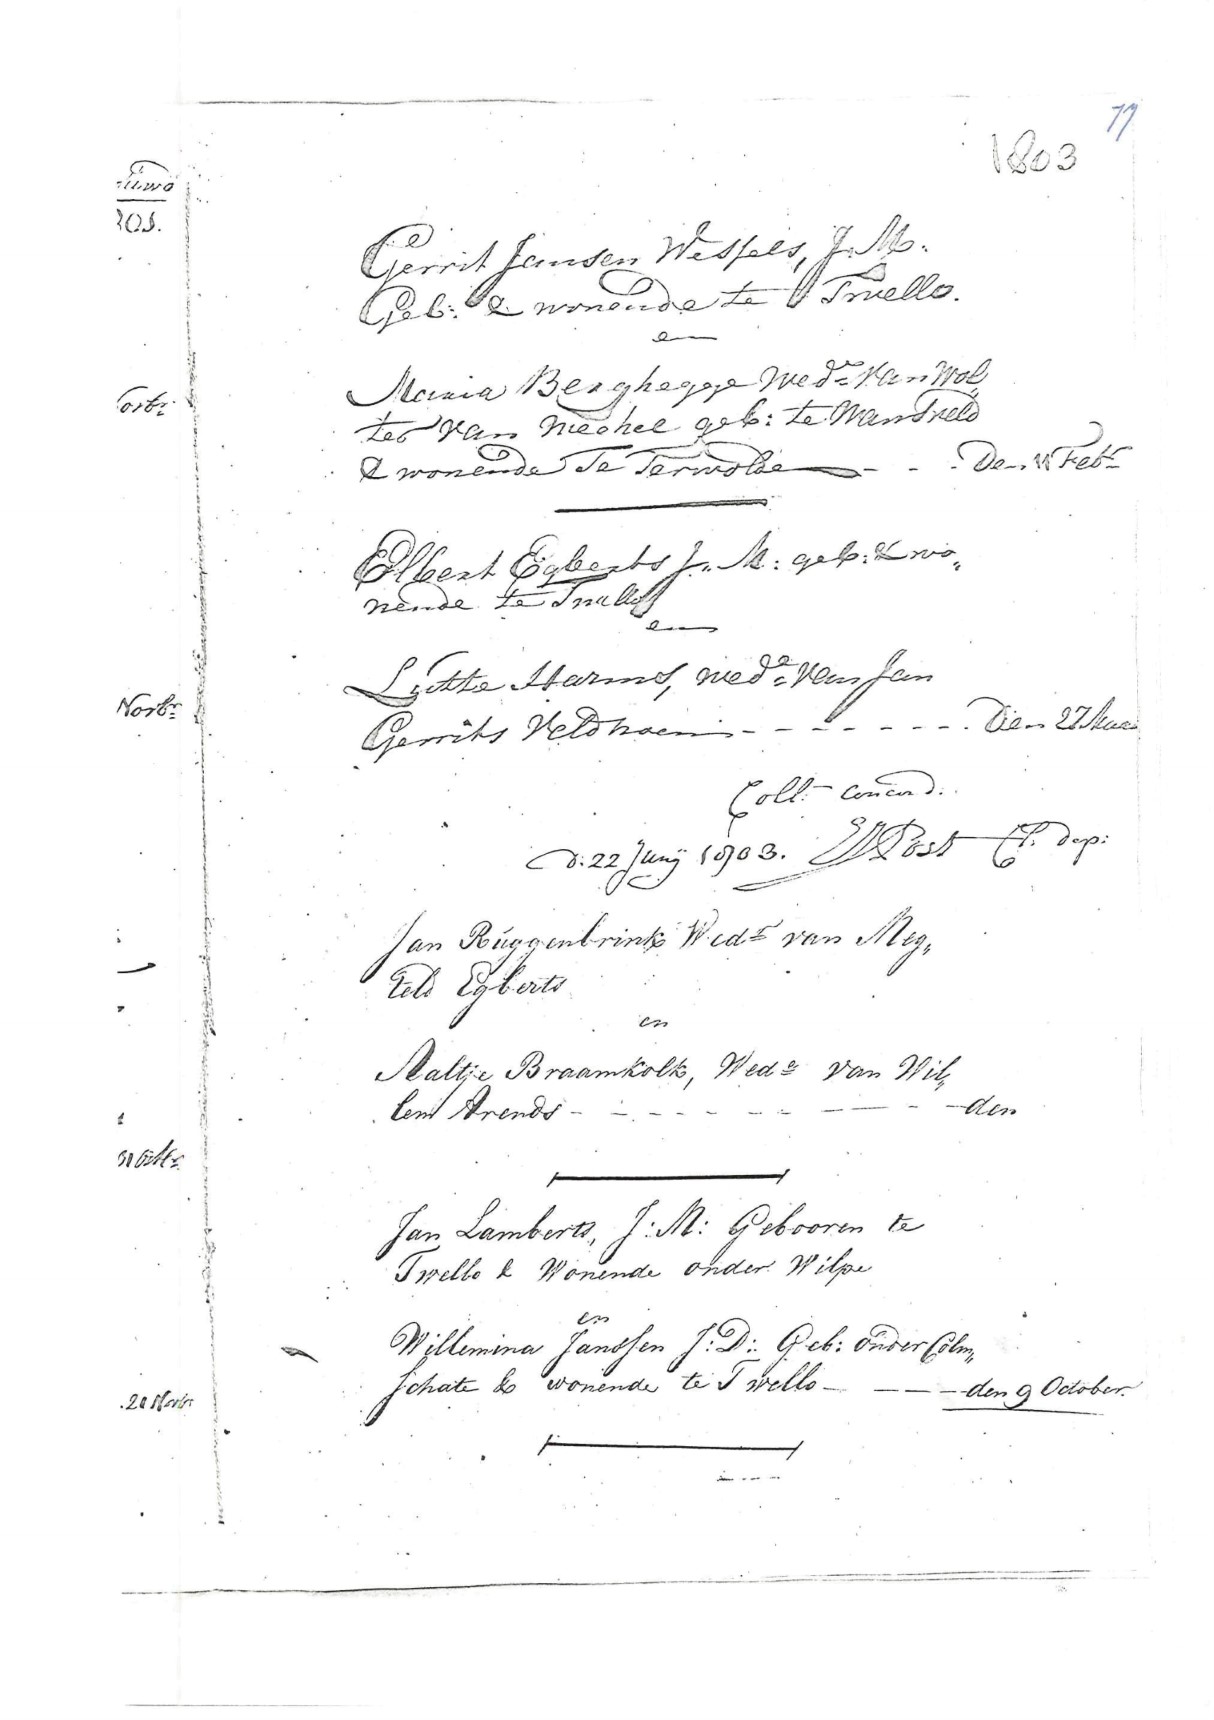 77
1803
Gerrit Jansen Wessels, J. M.
Geb: & wonende te Twello.
en
Maria Berghegge Wed:e van Wol„
ter van Mechel geb: te
& wonende Te Terwolde - - - Den 11 Feb:r
Elbert Egberts J. M: geb: & wo„
nende te Twello
en
Lutte Harms, wed:e van Jan
Gerrits Veldhoen - - - - - - - Den 27
Coll:t concord.
d: 22 Junij 1803. Post Cl: dep:
Jan Ruggenbrink Wed:r van Meg„
teld Egberts
en
Aaltje Braamkolk, Wed:e van Wil„
lem Arends - - - - - - - - - den
Jan Lamberts, J: M: Gebooren te
Twello & Wonende onder Wilpe
en
Willemina Janssen J: D: Geb: onder Colm„
schate & wonende te Twello - - - - den 9 October.
Novbr: